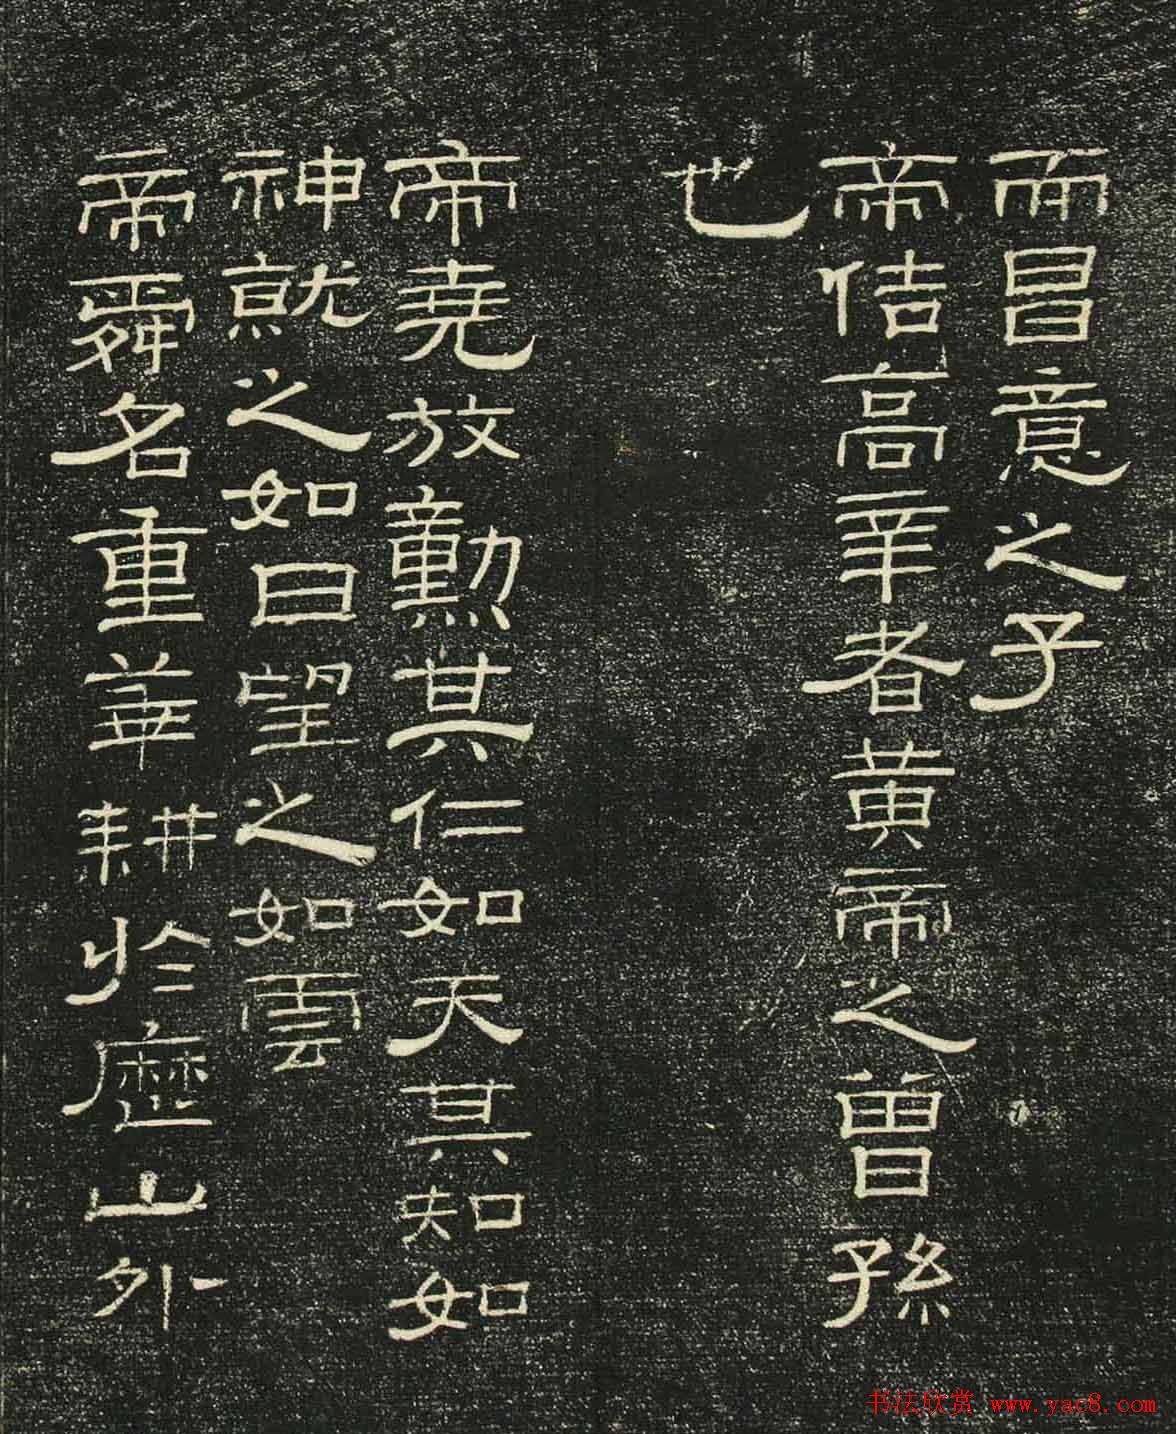 而昌意之子
帝佶高辛者黄帝之曾孫
也
帝堯放勳其仁如天其知如
神就之如日望之如雲
帝舜名重華耕於歷山外
书法欣赏 www.yac8.com